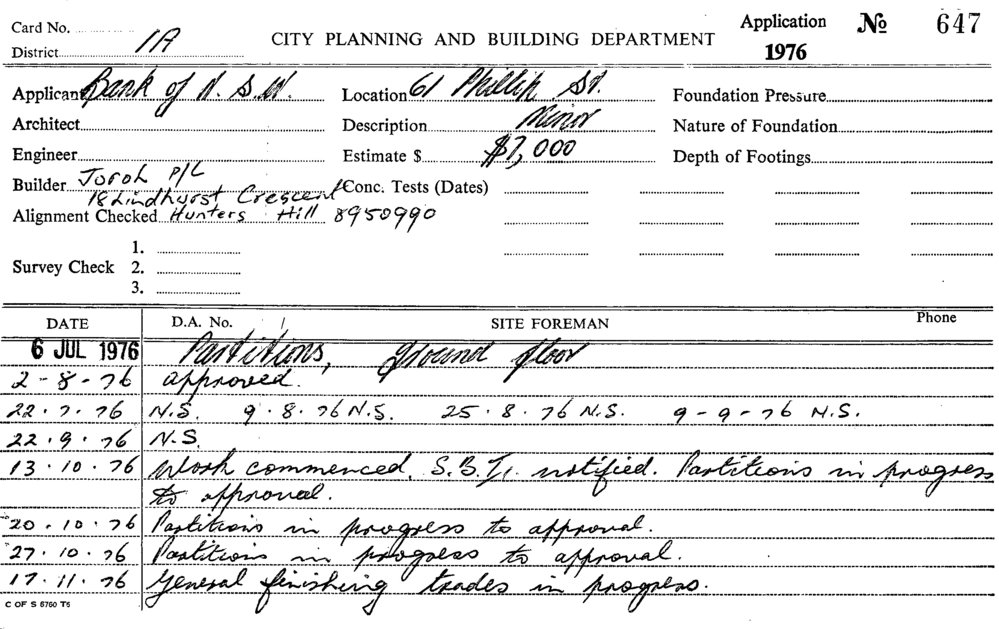 Card No. Application No 647
District 1A CITY PLANNING AND BUILDING DEPARTMENT 1976
Applicant Bank of N.S.W. Location 61 Phillip St. Foundation Pressure
Architect Description Minor Nature of Foundation
Engineer Estimate $ $7,000 Depth of Footings
Builder P/L Conc. Tests (Dates)
18 Lindhurst Crescent
Alignment Checked Hunters Hill 8950990
1.
Survey Check 2.
3.
DATE D.A. No. SITE FOREMAN Phone
6 JUL 1976 Partitions, ground floor
2-8-76 approved.
22.7.76 N.S. 9.8.76 N.S. 25.8.76 N.S. 9-9-76 N.S.
22.9.76 N.S.
13.10.76 Work commenced. notified. Partitions in progress
to approval.
20.10.76 Partitions in progress to approval.
27.10.76 Partitions in progress to approval.
17.11.76 General finishing trades in progress.
C OF S 6760 T5